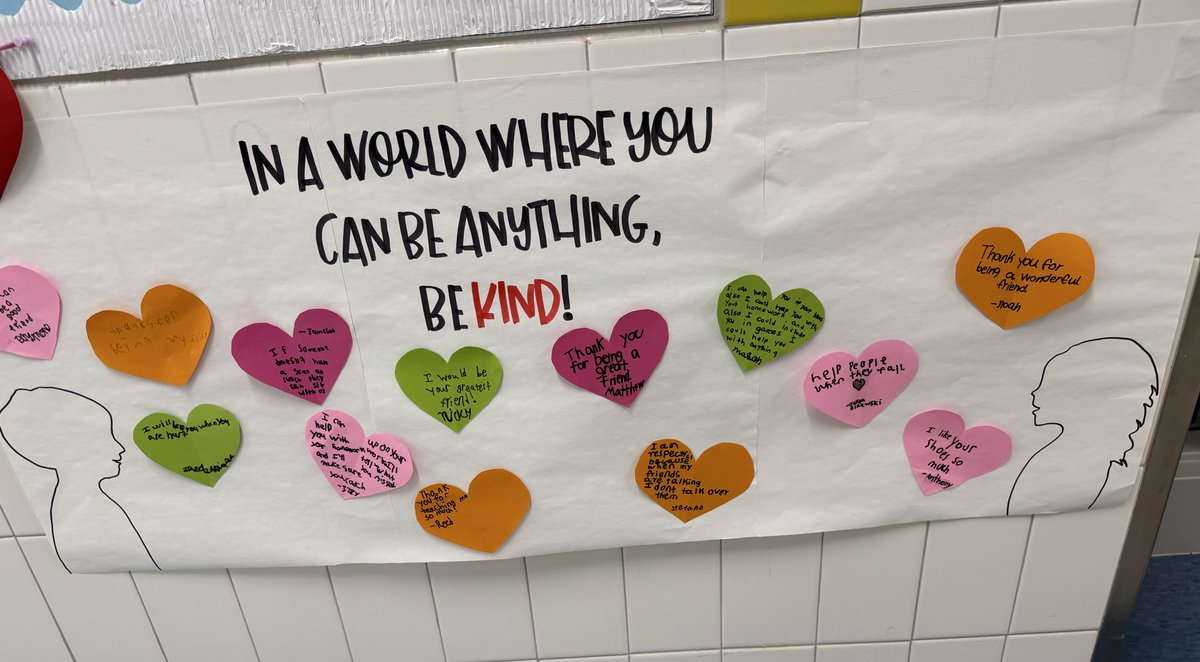 IN A WORLD WHERE YOU
CAN BE ANYTHING,
BE KIND!
can
be a
good
friend
- Janelba
If someone
doesn't have
a seat at
lunch they
can sit
with us
I will help you when you
are hurt
I can
help up on your
you with
and I'll tell you what
make sure you
you catch
-Izzy
I would be
your greatest
friend!
Nicky
Thank
you for
teaching me
so much!
-Reed
Thank you
for being a
great
friend
Matthew
I am
respectful
because
when my
friends
are talking
I dont talk over
them
stefano
I can help you in your
also I could help you with
your homework and
also I could include
you in games I
could help you
with anything
help people
when they fall.
I like your
shoes so
much
-Anthony
Thank you for
being a wonderful
friend
-noah